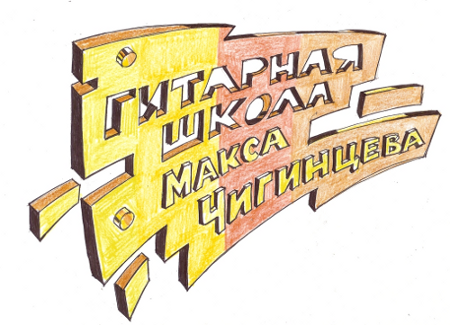 ГИТАРНАЯ
ШКОЛА
МАКСА
ЧИГИНЦЕВА